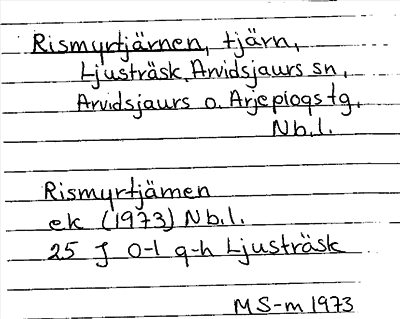 Rismyrtjärnen, tjärn,
Ljusträsk, Arvidsjaurs sn,
Arvidsjaurs o. Arjeplogs tg.
Nb.l.
Rismyrtjärnen
ek (1973) Nb.l.
25 J 0-1 g-h Ljusträsk
MS-m 1973